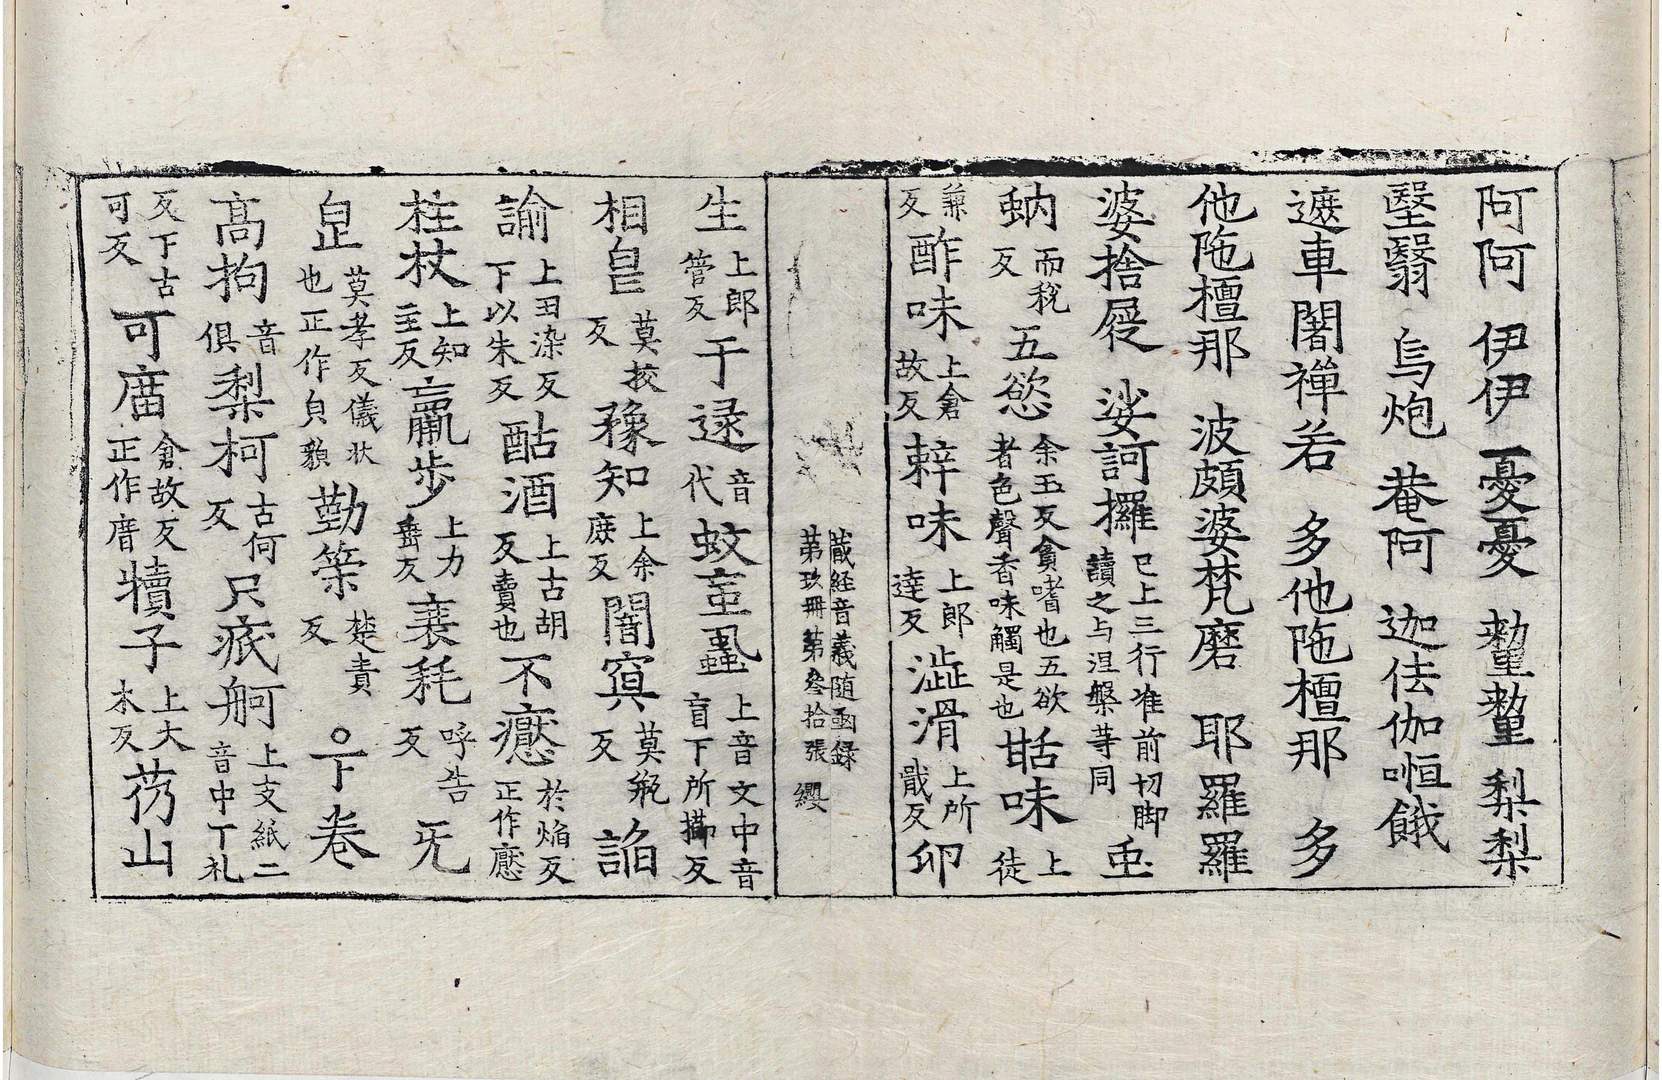 阿阿 伊伊 憂憂 𪍿𪍿 梨梨
堅翳 烏炮 菴阿 迦佉伽喢餓
遮車闍禪若 多他陁檀那 多
他陁檀那 波頗婆梵磨 耶羅羅
婆捨屣 娑訶攞 已上三行准前切脚讀之与涅槃等同 䖝
蚋 而稅反 五慾 余玉反貪嗜也五欲者色聲香味觸是也 甛味 上徒
兼反 酢味 上倉故反 辢味 上郎達反 澁滑 上所戢反 卵
藏経音義随函録
第玖冊第叄拾張 纓
生 上郎管反 于逯 音代 蚊䖟䖝 上音文中音盲下所擳反
相皃 莫挍反 豫知 上余庶反 闇𡨕 莫瓶反 諂
諭 上丑染反下以朱反 酤酒 上古胡反賣也 不㾾 於焰反正作懕
柱杖 上知主反 羸步 上力垂反 衰耗 呼告反 旡
皃 莫孝反儀狀也正作皃貌 勤䇿 楚責反 下卷
高拘 音俱 梨柯 古何反 尺疧舸 上支紙二音中丁礼
反下古可反 可厝 倉故反正作厝 犢子 上大木反 芿山